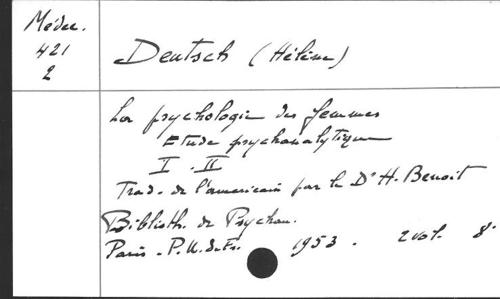 Médec.
421
2
Deutsch (Hélène)
La psychologie des femmes
Etude psychanalytique
I . II
Trad. de l'américain par le Dr H. Benoit
Biblioth. de Psychan.
Paris - P.U.de Fr. 1953 . 2 vol. 8°